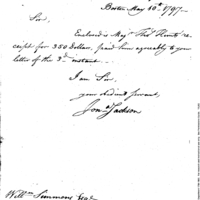 Boston May 10th. 1797.
Sir,
Enclosed is Majr. Thos. Hunts re-
ceipt for 350 Dollars, paid him agreeably to your
letter of the 3d. instant
I am Sir,
your obedient servant,
Jona. Jackson
Willm. Simmons Esqr.